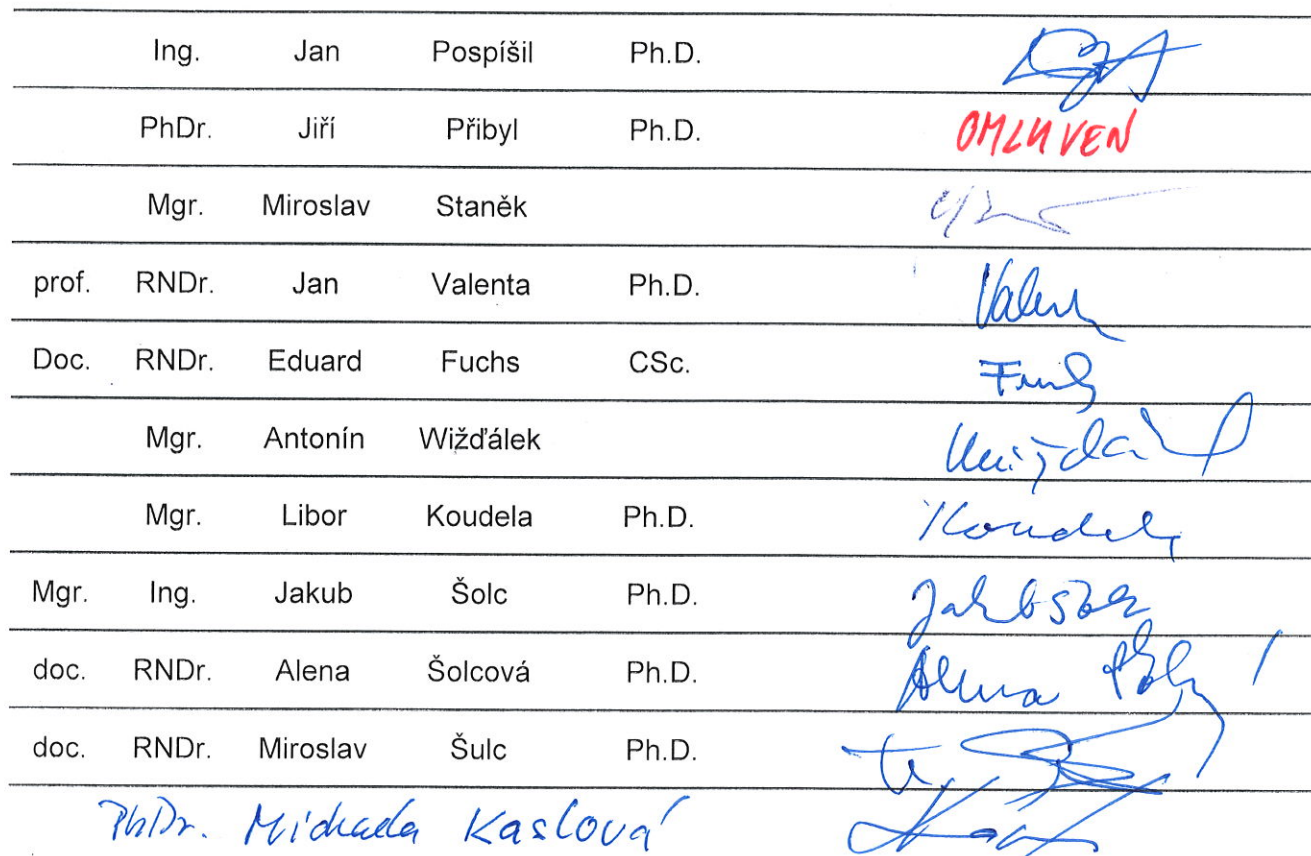 Ing. Jan Pospíšil Ph.D.
PhDr. Jiří Přibyl Ph.D. OMLUVEN
Mgr. Miroslav Staněk
prof. RNDr. Jan Valenta Ph.D. Valenta
Doc. RNDr. Eduard Fuchs CSc. Fuchs
Mgr. Antonín Wižďálek
Mgr. Libor Koudela Ph.D. Koudela
Mgr. Ing. Jakub Šolc Ph.D. Jakub Šolc
doc. RNDr. Alena Šolcová Ph.D. Alena
doc. RNDr. Miroslav Šulc Ph.D.
PhDr. Michaela Kaslová